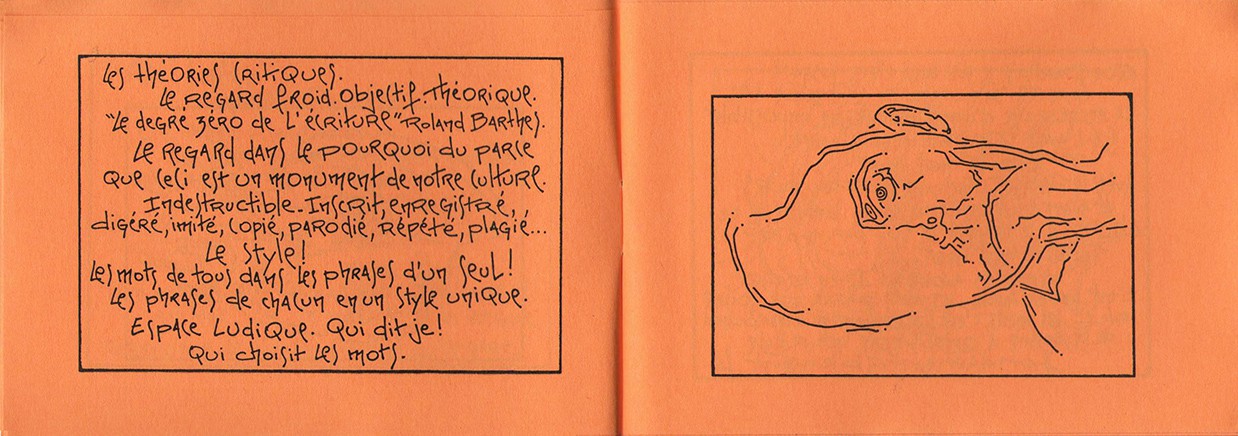 Les théories critiques.
Le regard froid. Objectif. Théorique.
"Le degré zéro de l'écriture" Roland Barthes.
Le regard dans le pourquoi du parce
que ceci est un monument de notre culture.
Indestructible. Inscrit, enregistré,
digéré, imité, copié, parodié, répété, plagié...
Le style!
Les mots de tous dans les phrases d'un seul!
Les phrases de chacun en un style unique.
Espace Ludique. Qui dit je!
Qui choisit les mots.